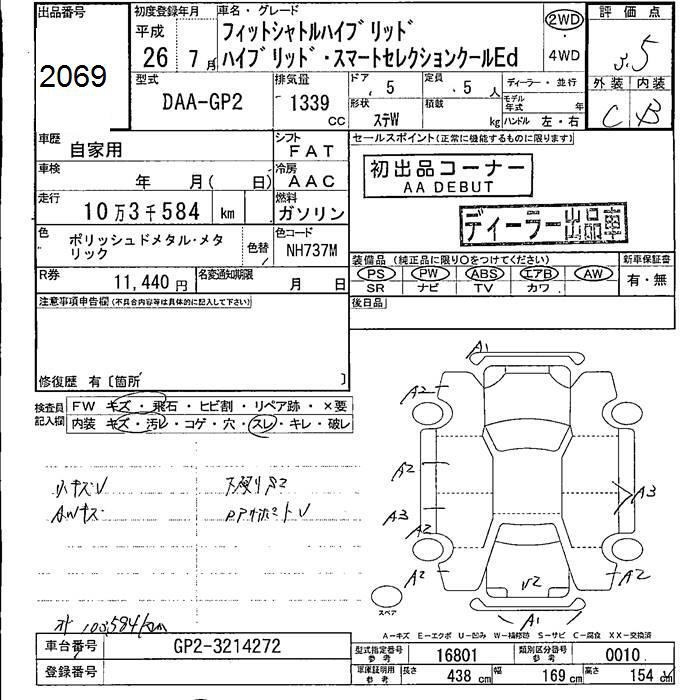 出品番号
2069
初度登録年月
平成
26 7月
車名・グレード
フィットシャトルハイブリッド
ハイブリッド・スマートセレクションクールEd
2WD
・
4WD
評価点
3.5
外装 内装
C B
型式
DAA-GP2
排気量
1339
CC
ドア 5
定員 5 人
形状
ステW
積載 kg
ディーラー・並行
モデル年式 年
ハンドル 左・右
車歴
自家用
シフト
FAT
車検
年 月( 日)
冷房
AAC
走行
10万3千584 km
燃料
ガソリン
色
ポリッシュドメタル・メタリック
色替
色コード
NH737M
R券
11,440円
名変通知期限
月 日
セールスポイント(正常に機能するものに限ります)
初出品コーナー
AA DEBUT
ディーラー出品車
装備品 (純正品に限り○をつけてください)
新車保証書
PS PW ABS エアB AW
SR ナビ TV カワ
有・無
後日品
注意事項申告欄(不具合内容等は具体的に記入して下さい)
修復歴 有〔箇所 〕
検査員
記入欄
FW キズ・飛石・ヒビ割・リペア跡・×要
内装 キズ・汚レ・コゲ・穴・スレ・キレ・破レ
AWキズ
103,584km
A1
A2
A2
A3
A2
A2
A3
A2
V2
A1
スペア
A-キズ E-エクボ U-凹み W-補修跡 S-サビ C-腐食 XX-交換済
車台番号
GP2-3214272
登録番号
型式指定番号
参考
16801
類別区分番号
参考
0010
車庫証明用
参考
長さ 438 cm
幅 169 cm
高さ 154 cm